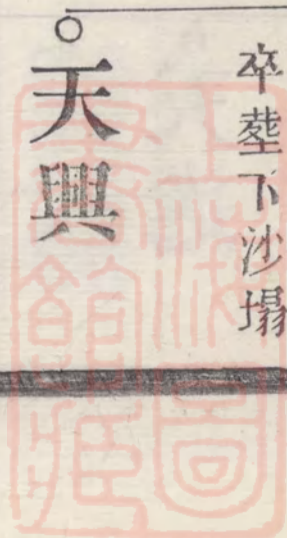 卒塟下沙塌
○天興
上海圖書館藏